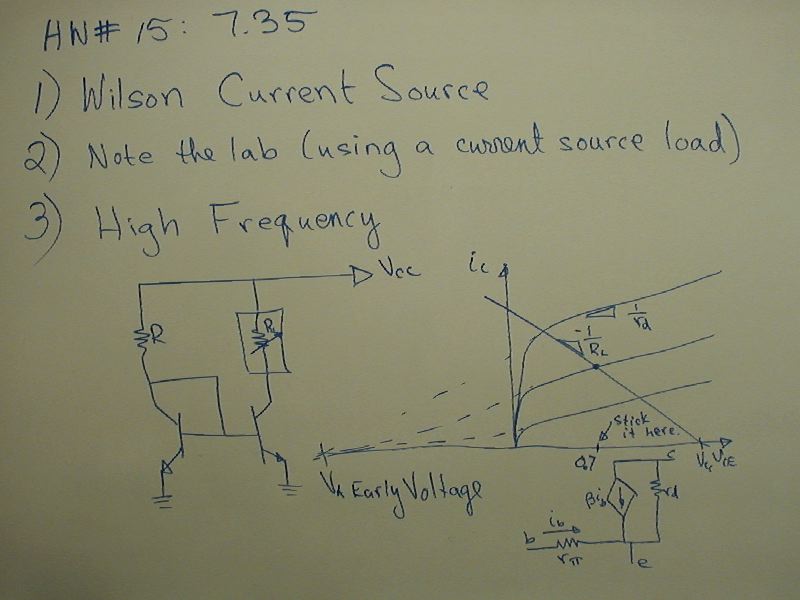 HW# 15: 7.35
1) Wilson Current Source
2) Note the lab (using a current source load)
3) High Frequency
Vcc
ic
R
RL
1/rd
-1/RL
stick
it here.
0.7
Vcc VCE
VA Early Voltage
c
βib
rd
ib
b
rπ
e